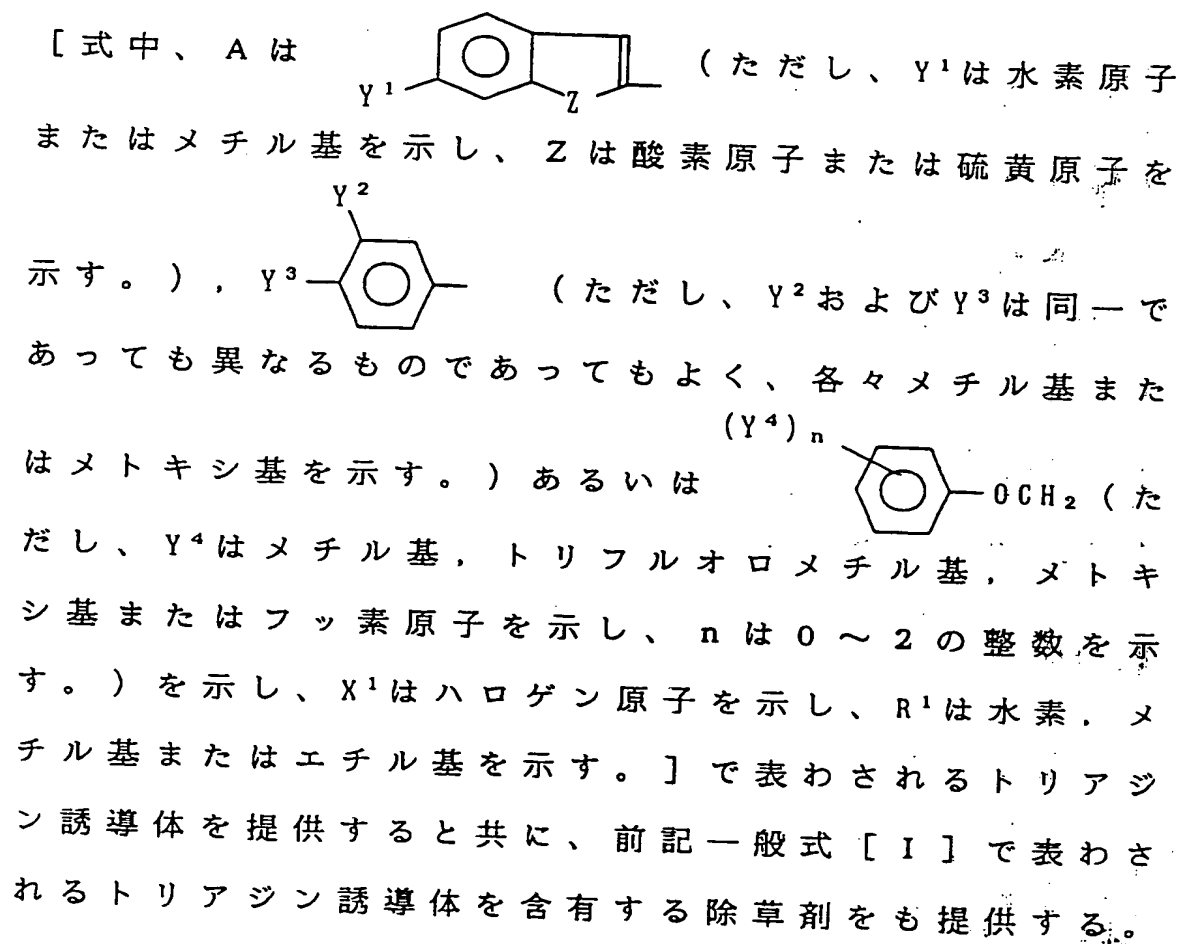 [式中、Aは Y¹ Z (ただし、Y¹は水素原子
またはメチル基を示し、Zは酸素原子または硫黄原子を
Y²
示す。), Y³ (ただし、Y²およびY³は同一で
あっても異なるものであってもよく、各々メチル基また
(Y⁴)n
はメトキシ基を示す。)あるいは OCH₂(た
だし、Y⁴はメチル基,トリフルオロメチル基,メトキ
シ基またはフッ素原子を示し、nは0~2の整数を示
す。)を示し、X¹はハロゲン原子を示し、R¹は水素.メ
チル基またはエチル基を示す。]で表わされるトリアジ
ン誘導体を提供すると共に、前記一般式[I]で表わさ
れるトリアジン誘導体を含有する除草剤をも提供する。